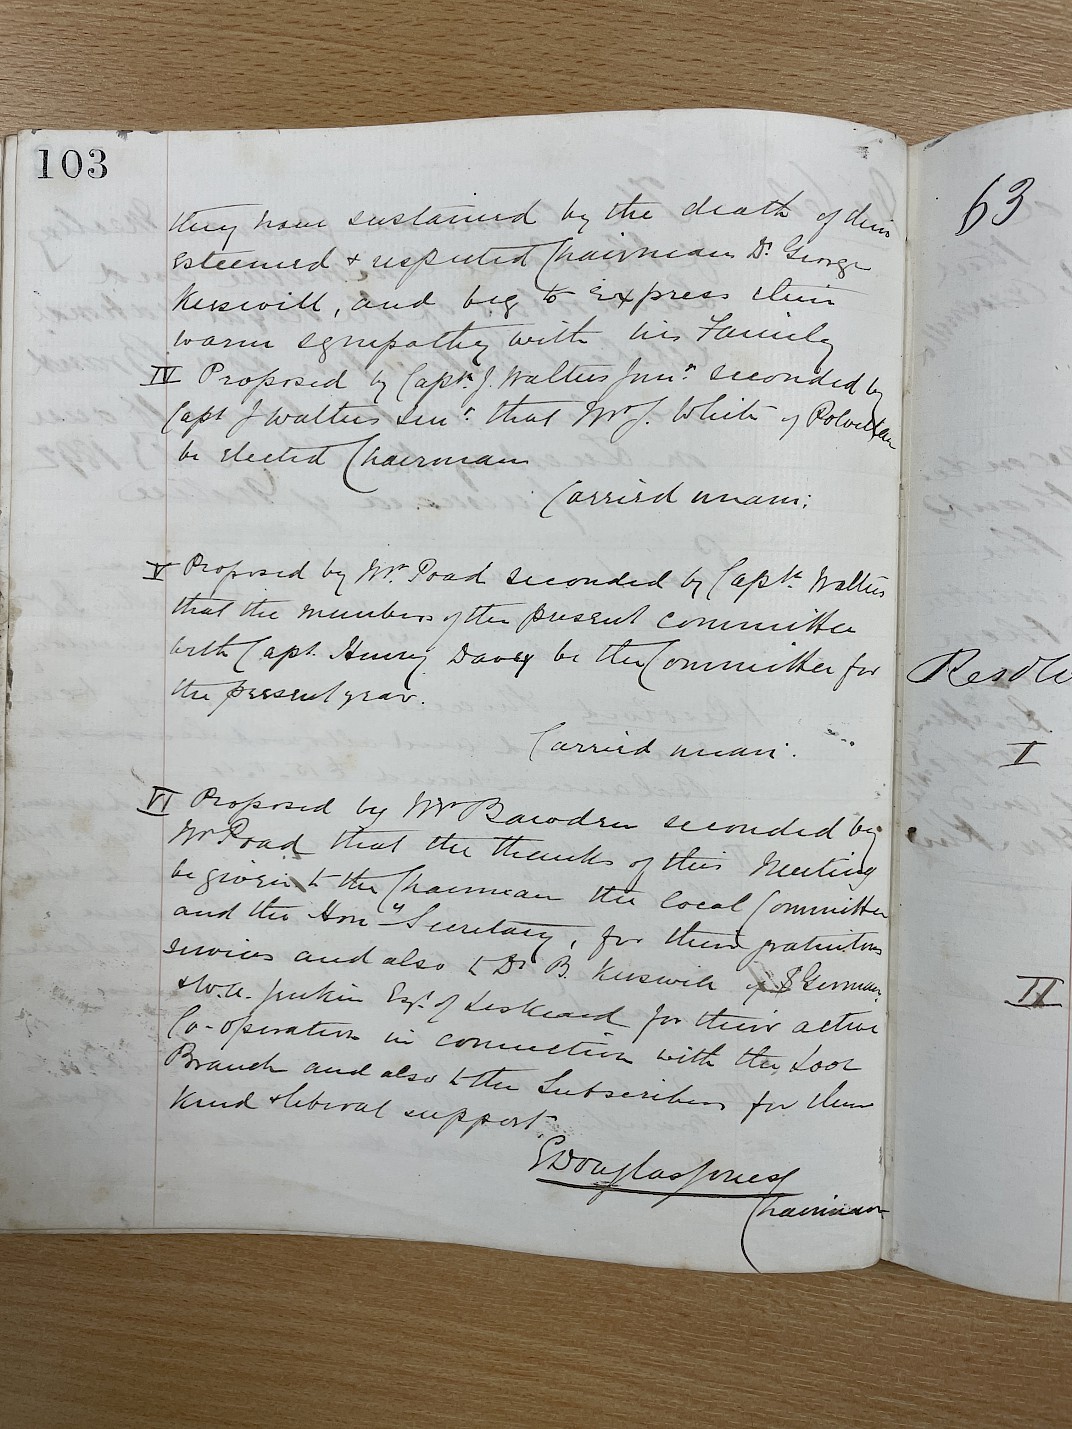 103
they have sustained by the death of their
esteemed & respected Chairman Dr. George
Kerswill, and beg to express their
warm sympathy with his Family
IV Proposed by Captn J. Walters Junr. seconded by
Capt J Walters Senr. that Mr J. White of Polvellan
be elected Chairman
Carried unani:
V Proposed by Mr. Poad seconded by Captn. Walters
that the members of the present committee
with Capt. Henry Davey be the Committee for
the present year.
Carried unani:
VI Proposed by Mr Bawden seconded by
Mr Poad that the thanks of this Meeting
be given to the Chairman the local Committee
and the Hony Secretary, for their gratuitous
services and also to Dr B. Kerswill of St Germans
& W.A. Jenkin Esqr. of Liskeard for their active
Co-operation in connection with the Looe
Branch and also to the Subscribers for their
kind & liberal support.
E Douglas Jones
Chairman
63
I
II